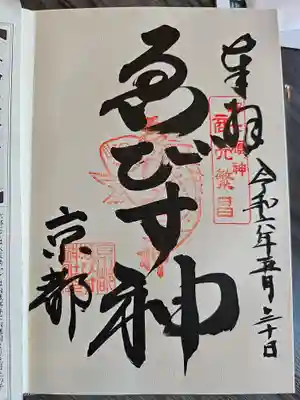 奉拝
令和六年五月三十日
商売繁昌
ゑびす神
京都